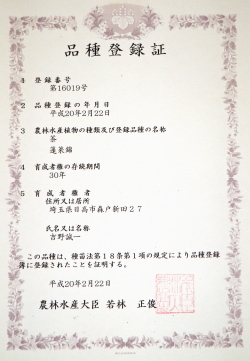 品種登録証
1 登録番号
第16019号
2 品種登録の年月日
平成20年2月22日
3 農林水産植物の種類及び登録品種の名称
茶
蓬莱錦
4 育成者権の存続期間
30年
5 育成者権者
住所又は居所
埼玉県日高市森戸新田27
氏名又は名称
吉野誠一
この品種は、種苗法第18条第1項の規定により品種登録
簿に登録されたことを証明する。
平成20年2月22日
農林水産大臣 若林 正俊